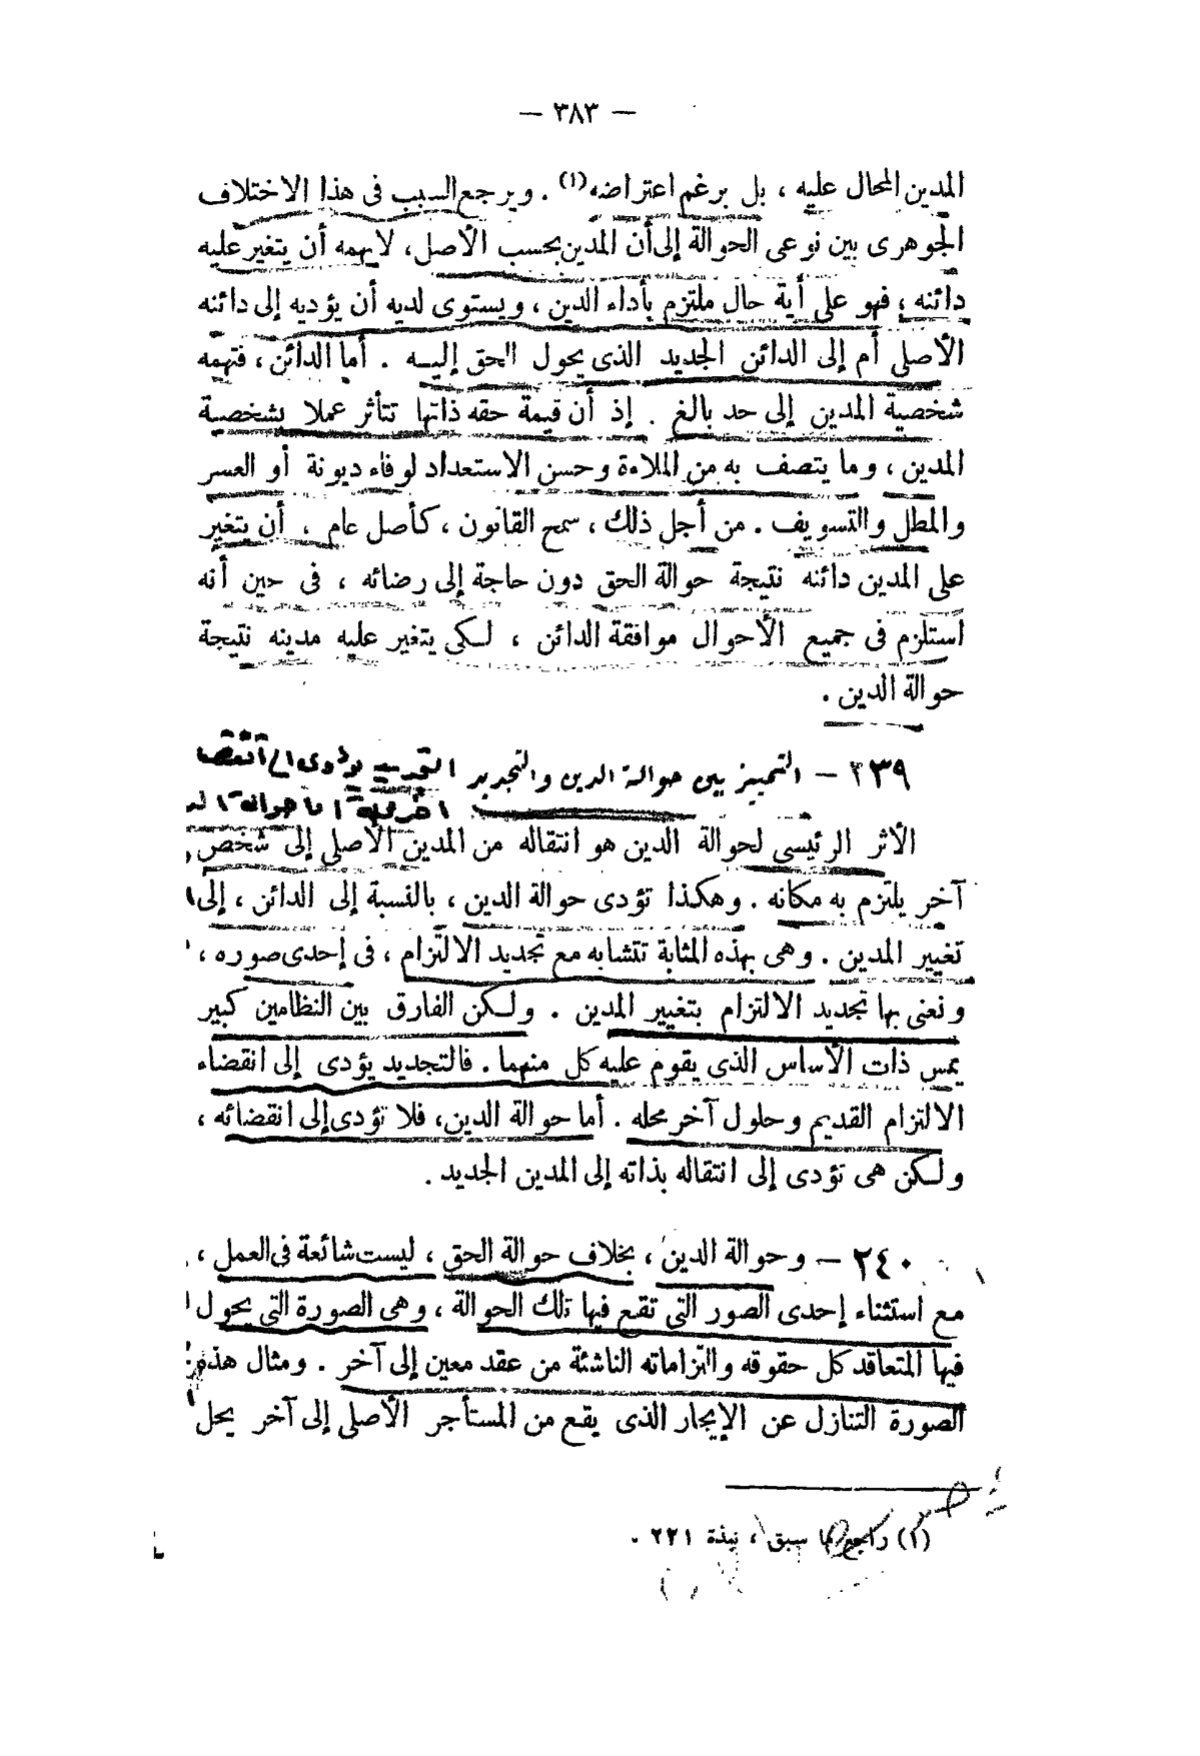 — ٣٨٣ —
المدين المحال عليه ، بل برغم اعتراضه (١) . ويرجع السبب فى هذا الاختلاف
الجوهرى بين نوعى الحوالة إلى أن المدين بحسب الأصل، لا يهمه أن يتغير عليه
دائنه ؛ فهو على أية حال ملتزم بأداء الدين ، ويستوى لديه أن يؤديه إلى دائنه
الأصلى أم إلى الدائن الجديد الذى يحول الحق إليـه . أما الدائن ، فتهمه
شخصية المدين إلى حد بالغ . إذ أن قيمة حقه ذاتها تتأثر عملا بشخصية
المدين ، وما يتصف به من الملاءة وحسن الاستعداد لوفاء ديونة أو العسر
والمطل والتسويف . من أجل ذلك ، سمح القانون ، كأصل عام ، أن يتغير
على المدين دائنه نتيجة حوالة الحق دون حاجة إلى رضائه ، فى حين أنه
استلزم فى جميع الأحوال موافقة الدائن ، لـكى يتغير عليه مدينه نتيجة
حوالة الدين .
٢٣٩ — التمييز بين حوالة الدين والتجديد
الأثر الرئيسى لحوالة الدين هو انتقاله من المدين الأصلى إلى شخص
آخر يلتزم به مكانه . وهكذا تؤدى حوالة الدين ، بالنسبة إلى الدائن ، إلى
تغيير المدين . وهى بهذه المثابة تتشابه مع تجديد الالتزام ، فى إحدى صوره ،
ونعنى بها تجديد الالتزام بتغيير المدين . ولـكن الفارق بين النظامين كبير
يمس ذات الأساس الذى يقوم عليه كل منهما . فالتجديد يؤدى إلى انقضاء
الالتزام القديم وحلول آخر محله . أما حوالة الدين، فلا تؤدى إلى انقضائه ،
ولـكن هى تؤدى إلى انتقاله بذاته إلى المدين الجديد .
٢٤٠ — وحوالة الدين ، بخلاف حوالة الحق ، ليست شائعة فى العمل ،
مع استثناء إحدى الصور التى تقع فيها تلك الحوالة ، وهى الصورة التى يحول
فيها المتعاقد كل حقوقه والتزاماته الناشئة من عقد معين إلى آخر . ومثال هذه
الصورة التنازل عن الإيجار الذى يقع من المستأجر الأصلى إلى آخر يحل
(١) راجع ما سبق ، نبذة ٢٢١ .